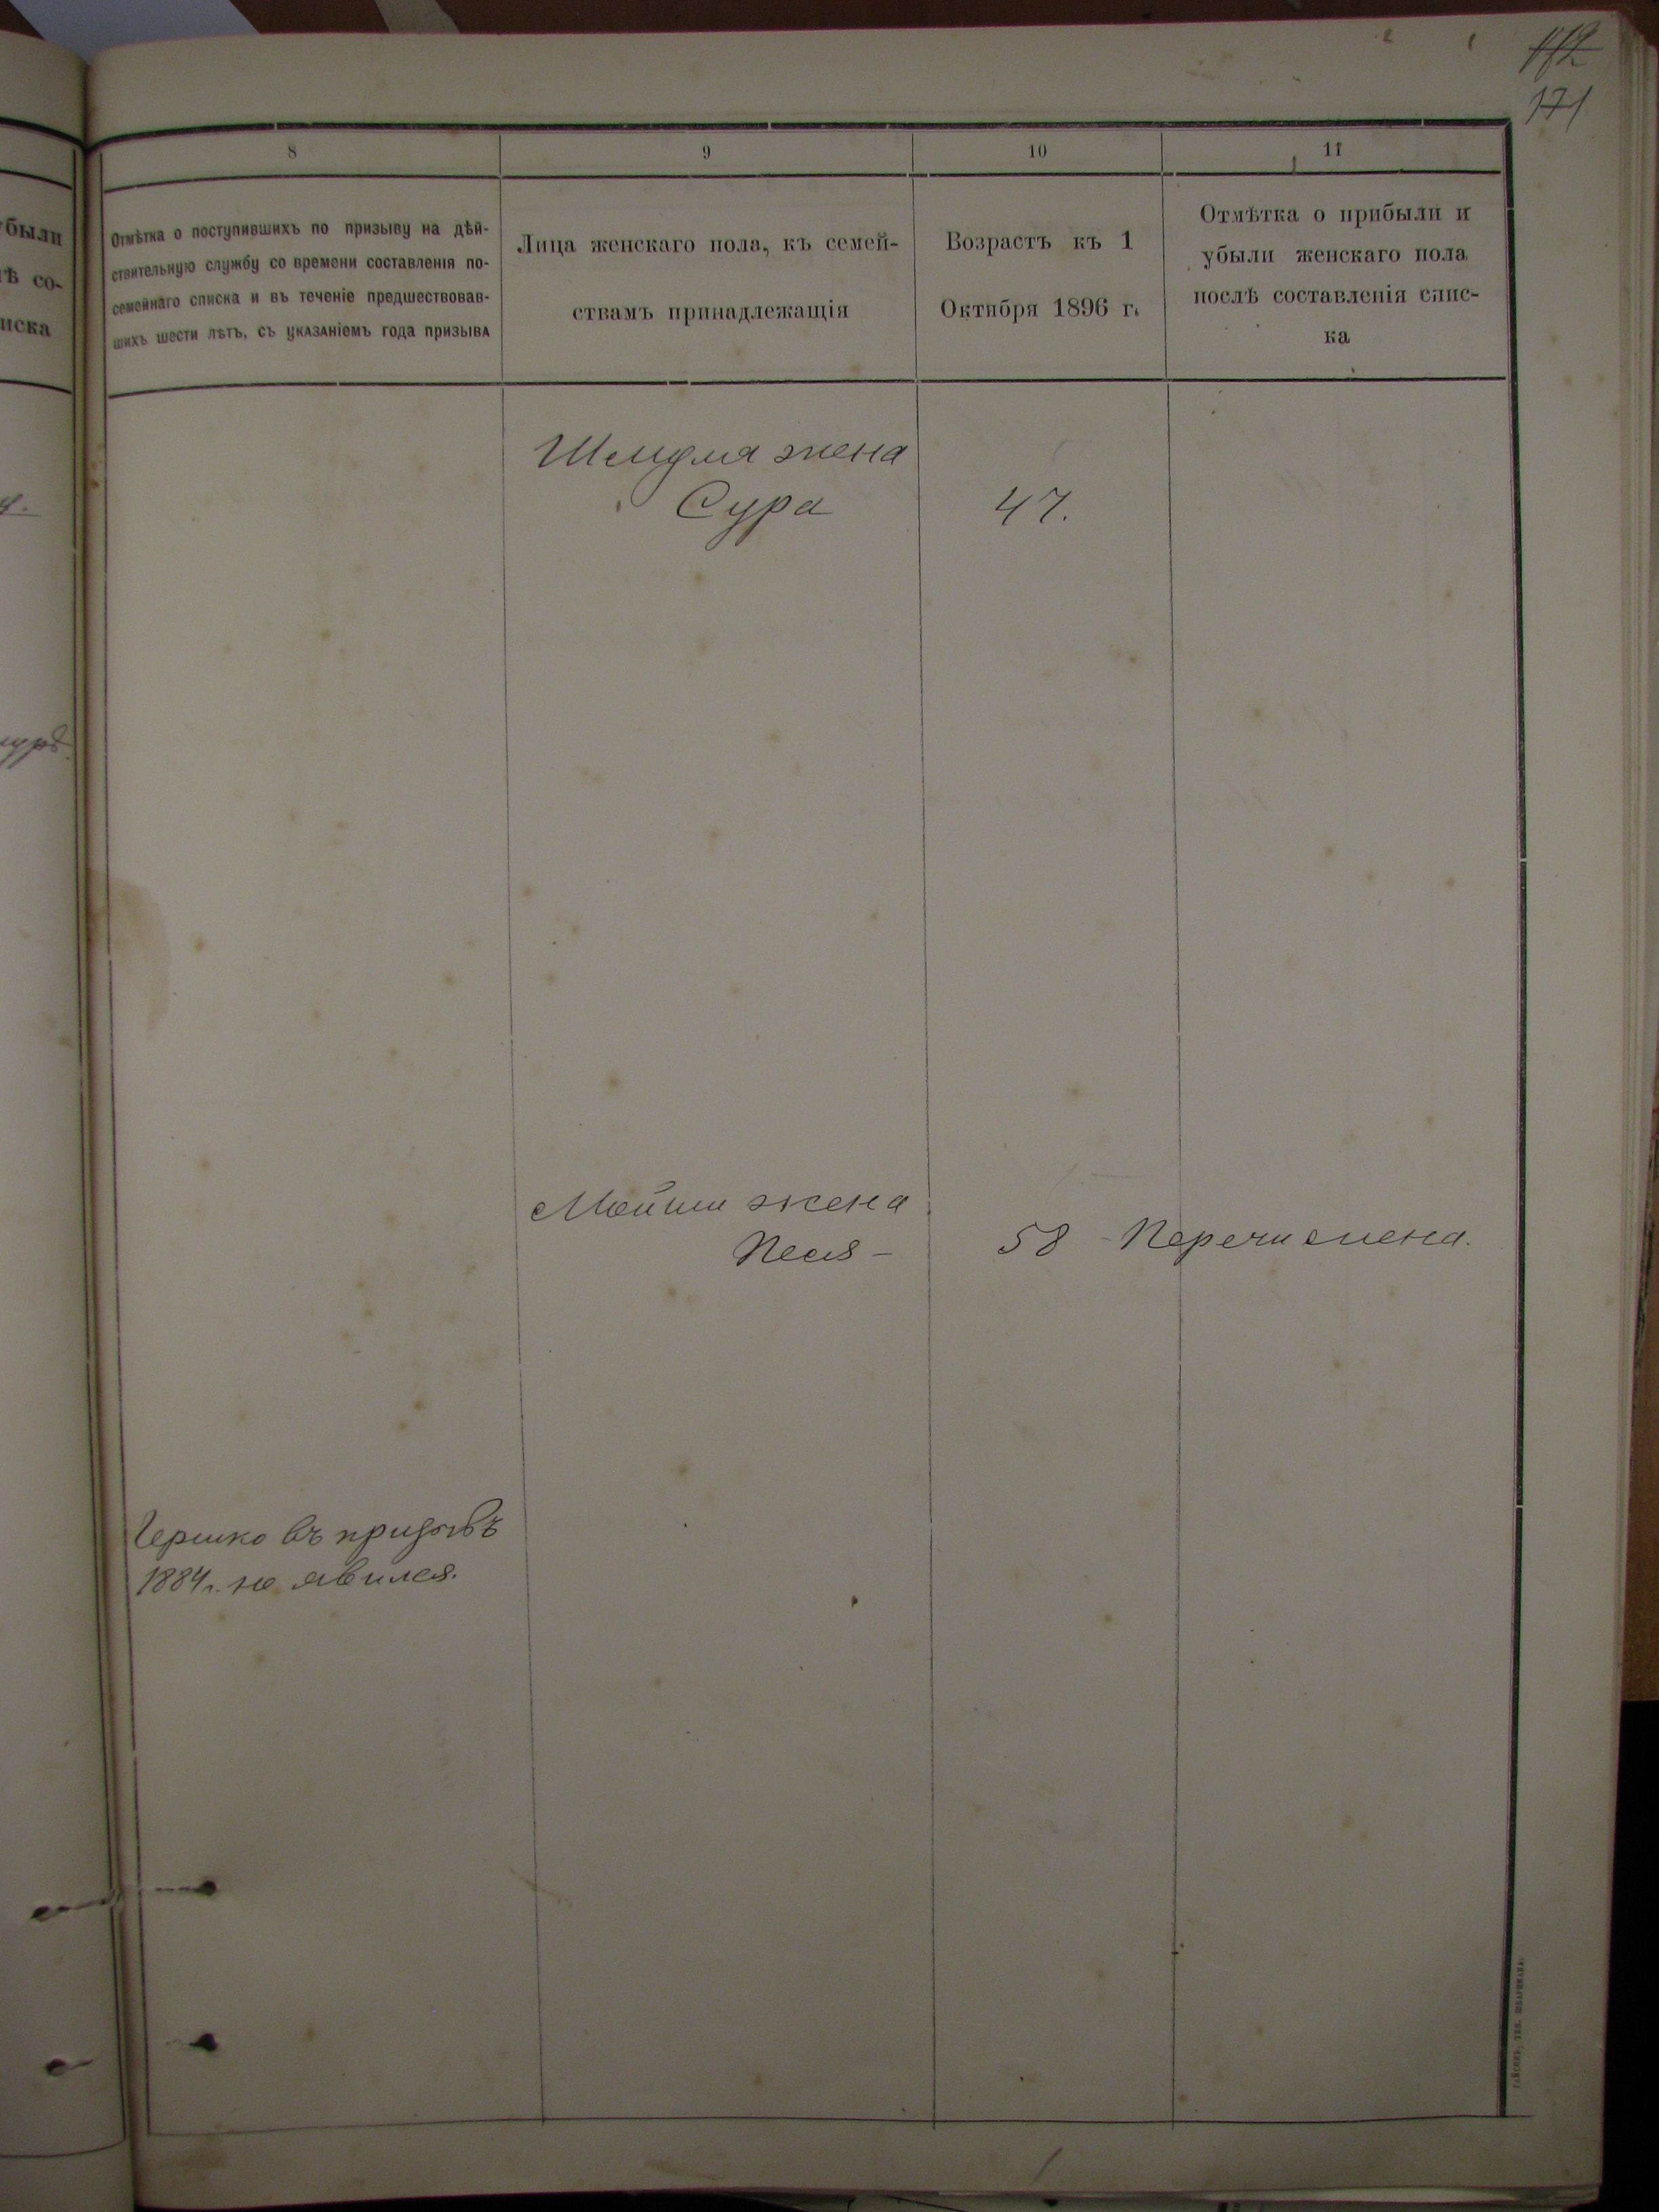 172
171
8
9
10
11
Отмѣтка о поступившихъ по призыву на дѣй-
ствительную службу со времени составленія по-
семейнаго списка и въ теченіе предшествовав-
шихъ шести лѣтъ, съ указаніемъ года призыва
Лица женскаго пола, къ семей-
ствамъ принадлежащія
Возрастъ къ 1
Октября 1896 г.
Отмѣтка о прибыли и
убыли женскаго пола
послѣ составленія спис-
ка
были
ѣ со-
иска
Шмуля жена
Сура
47.
Мошки жена
Песя –
58 - Перечислена.
Гершко въ призывъ
1884 г. не явился.